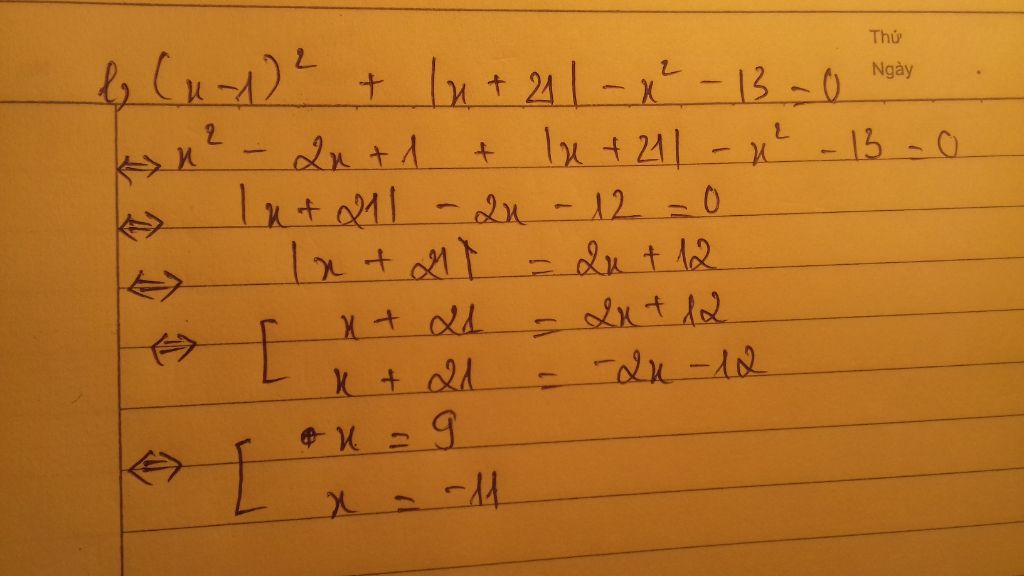 Thứ
Ngày
b, (x-1)² + |x + 21| - x² - 13 = 0
⇔ x² - 2x + 1 + |x + 21| - x² - 13 = 0
⇔ |x + 21| - 2x - 12 = 0
⇔ |x + 21| = 2x + 12
⇔ [ x + 21 = 2x + 12
x + 21 = -2x - 12
⇔ [ x = 9
x = -11